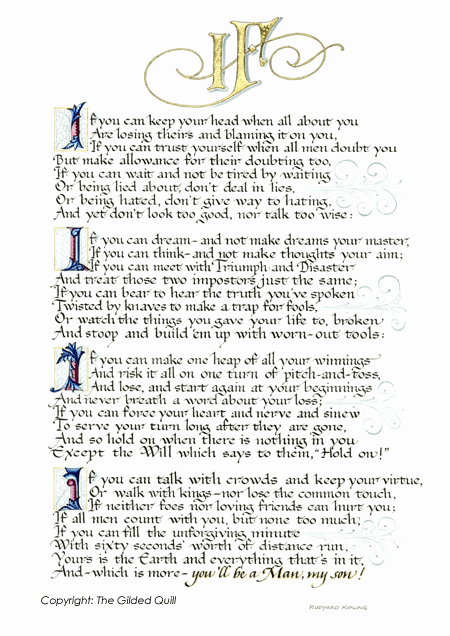 IF
If you can keep your head when all about you
Are losing theirs and blaming it on you,
If you can trust yourself when all men doubt you
But make allowance for their doubting too,
If you can wait and not be tired by waiting
Or being lied about, don't deal in lies,
Or being hated, don't give way to hating,
And yet don't look too good, nor talk too wise:
If you can dream-and not make dreams your master,
If you can think-and not make thoughts your aim;
If you can meet with Triumph and Disaster
And treat those two impostors just the same;
If you can bear to hear the truth you've spoken
Twisted by knaves to make a trap for fools,
Or watch the things you gave your life to, broken
And stoop and build 'em up with worn-out tools:
If you can make one heap of all your winnings
And risk it all on one turn of pitch-and-toss,
And lose, and start again at your beginnings
And never breath a word about your loss;
If you can force your heart and nerve and sinew
To serve your turn long after they are gone,
And so hold on when there is nothing in you
Except the Will which says to them, "Hold on!"
If you can talk with crowds and keep your virtue,
Or walk with kings-nor lose the common touch,
If neither foes nor loving friends can hurt you;
If all men count with you, but none too much;
If you can fill the unforgiving minute
With sixty seconds' worth of distance run,
Yours is the Earth and everything that's in it,
And-which is more-you'll be a Man, my son!
Copyright: The Gilded Quill
Rudyard Kipling